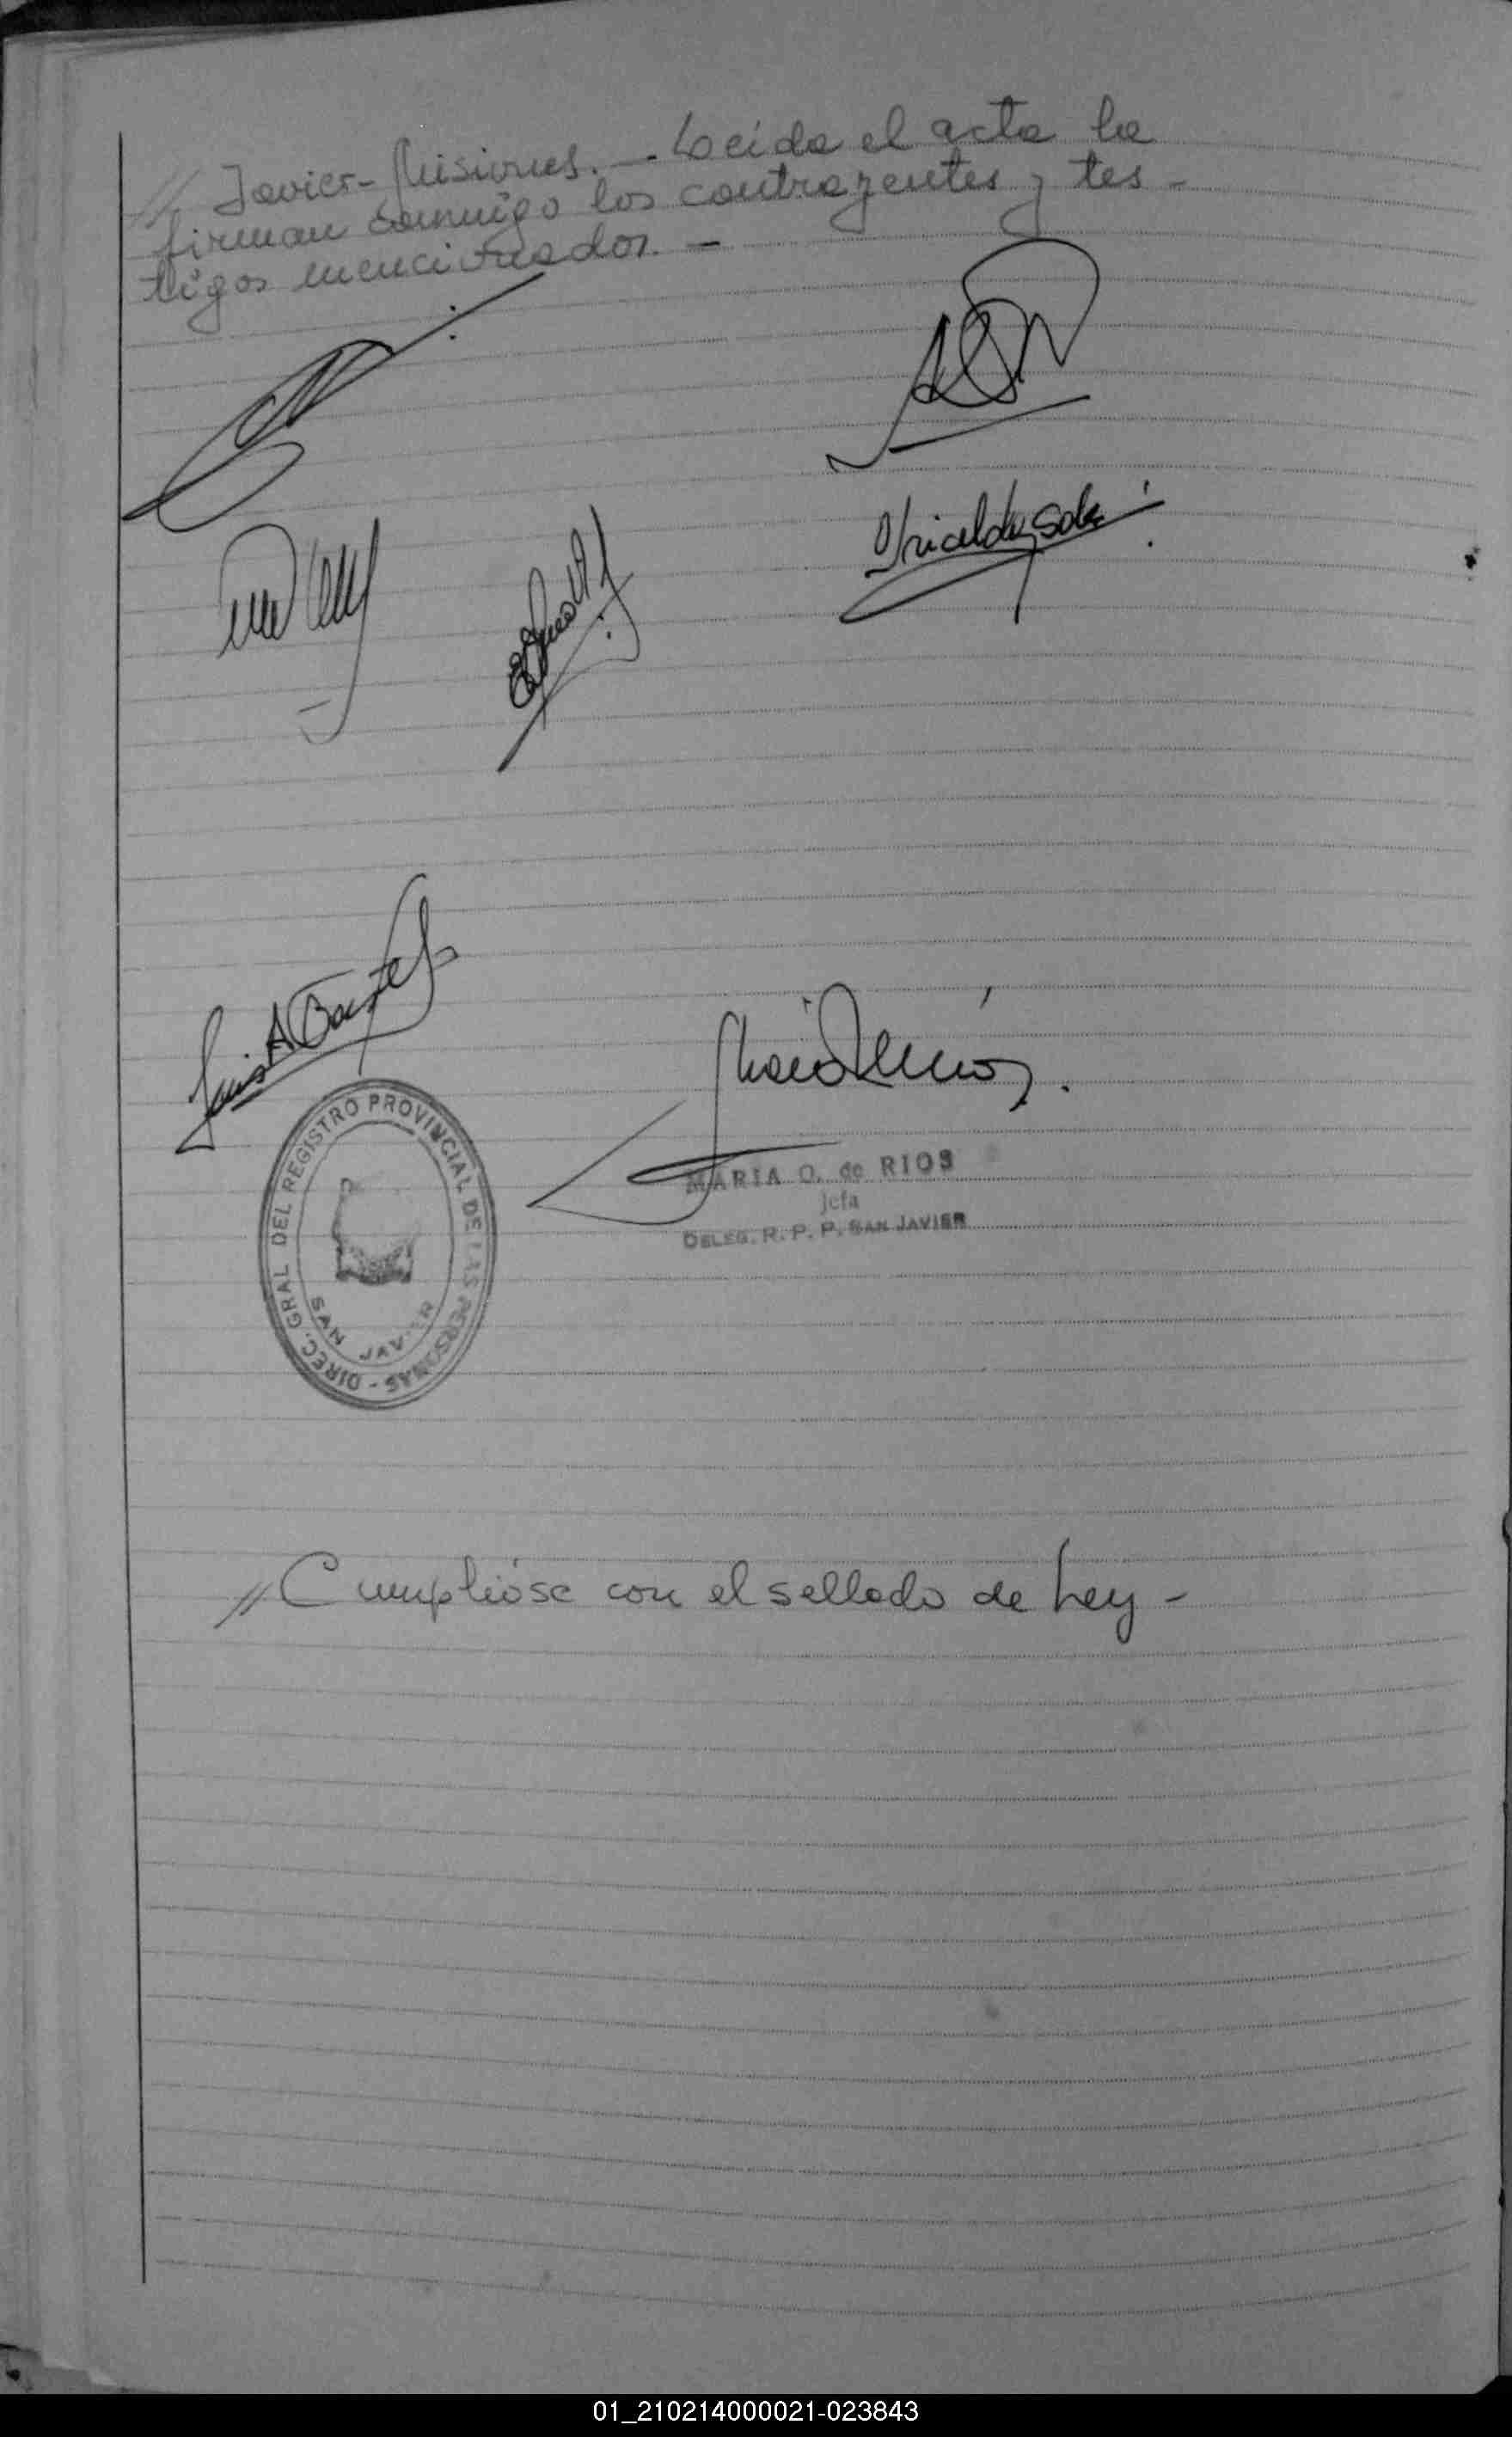 // Javier - Misiones. - Leída el acta la
firman conmigo los contrayentes y tes -
tigos mencionados. -
Luis A
DIREC. GRAL DEL REGISTRO PROVINCIAL DE LAS PERSONAS -
SAN JAVIER
MARIA O. de RIOS
Jefa
DELEG. R. P. P. SAN JAVIER
// Cumplióse con el sellado de Ley -
01_210214000021-023843